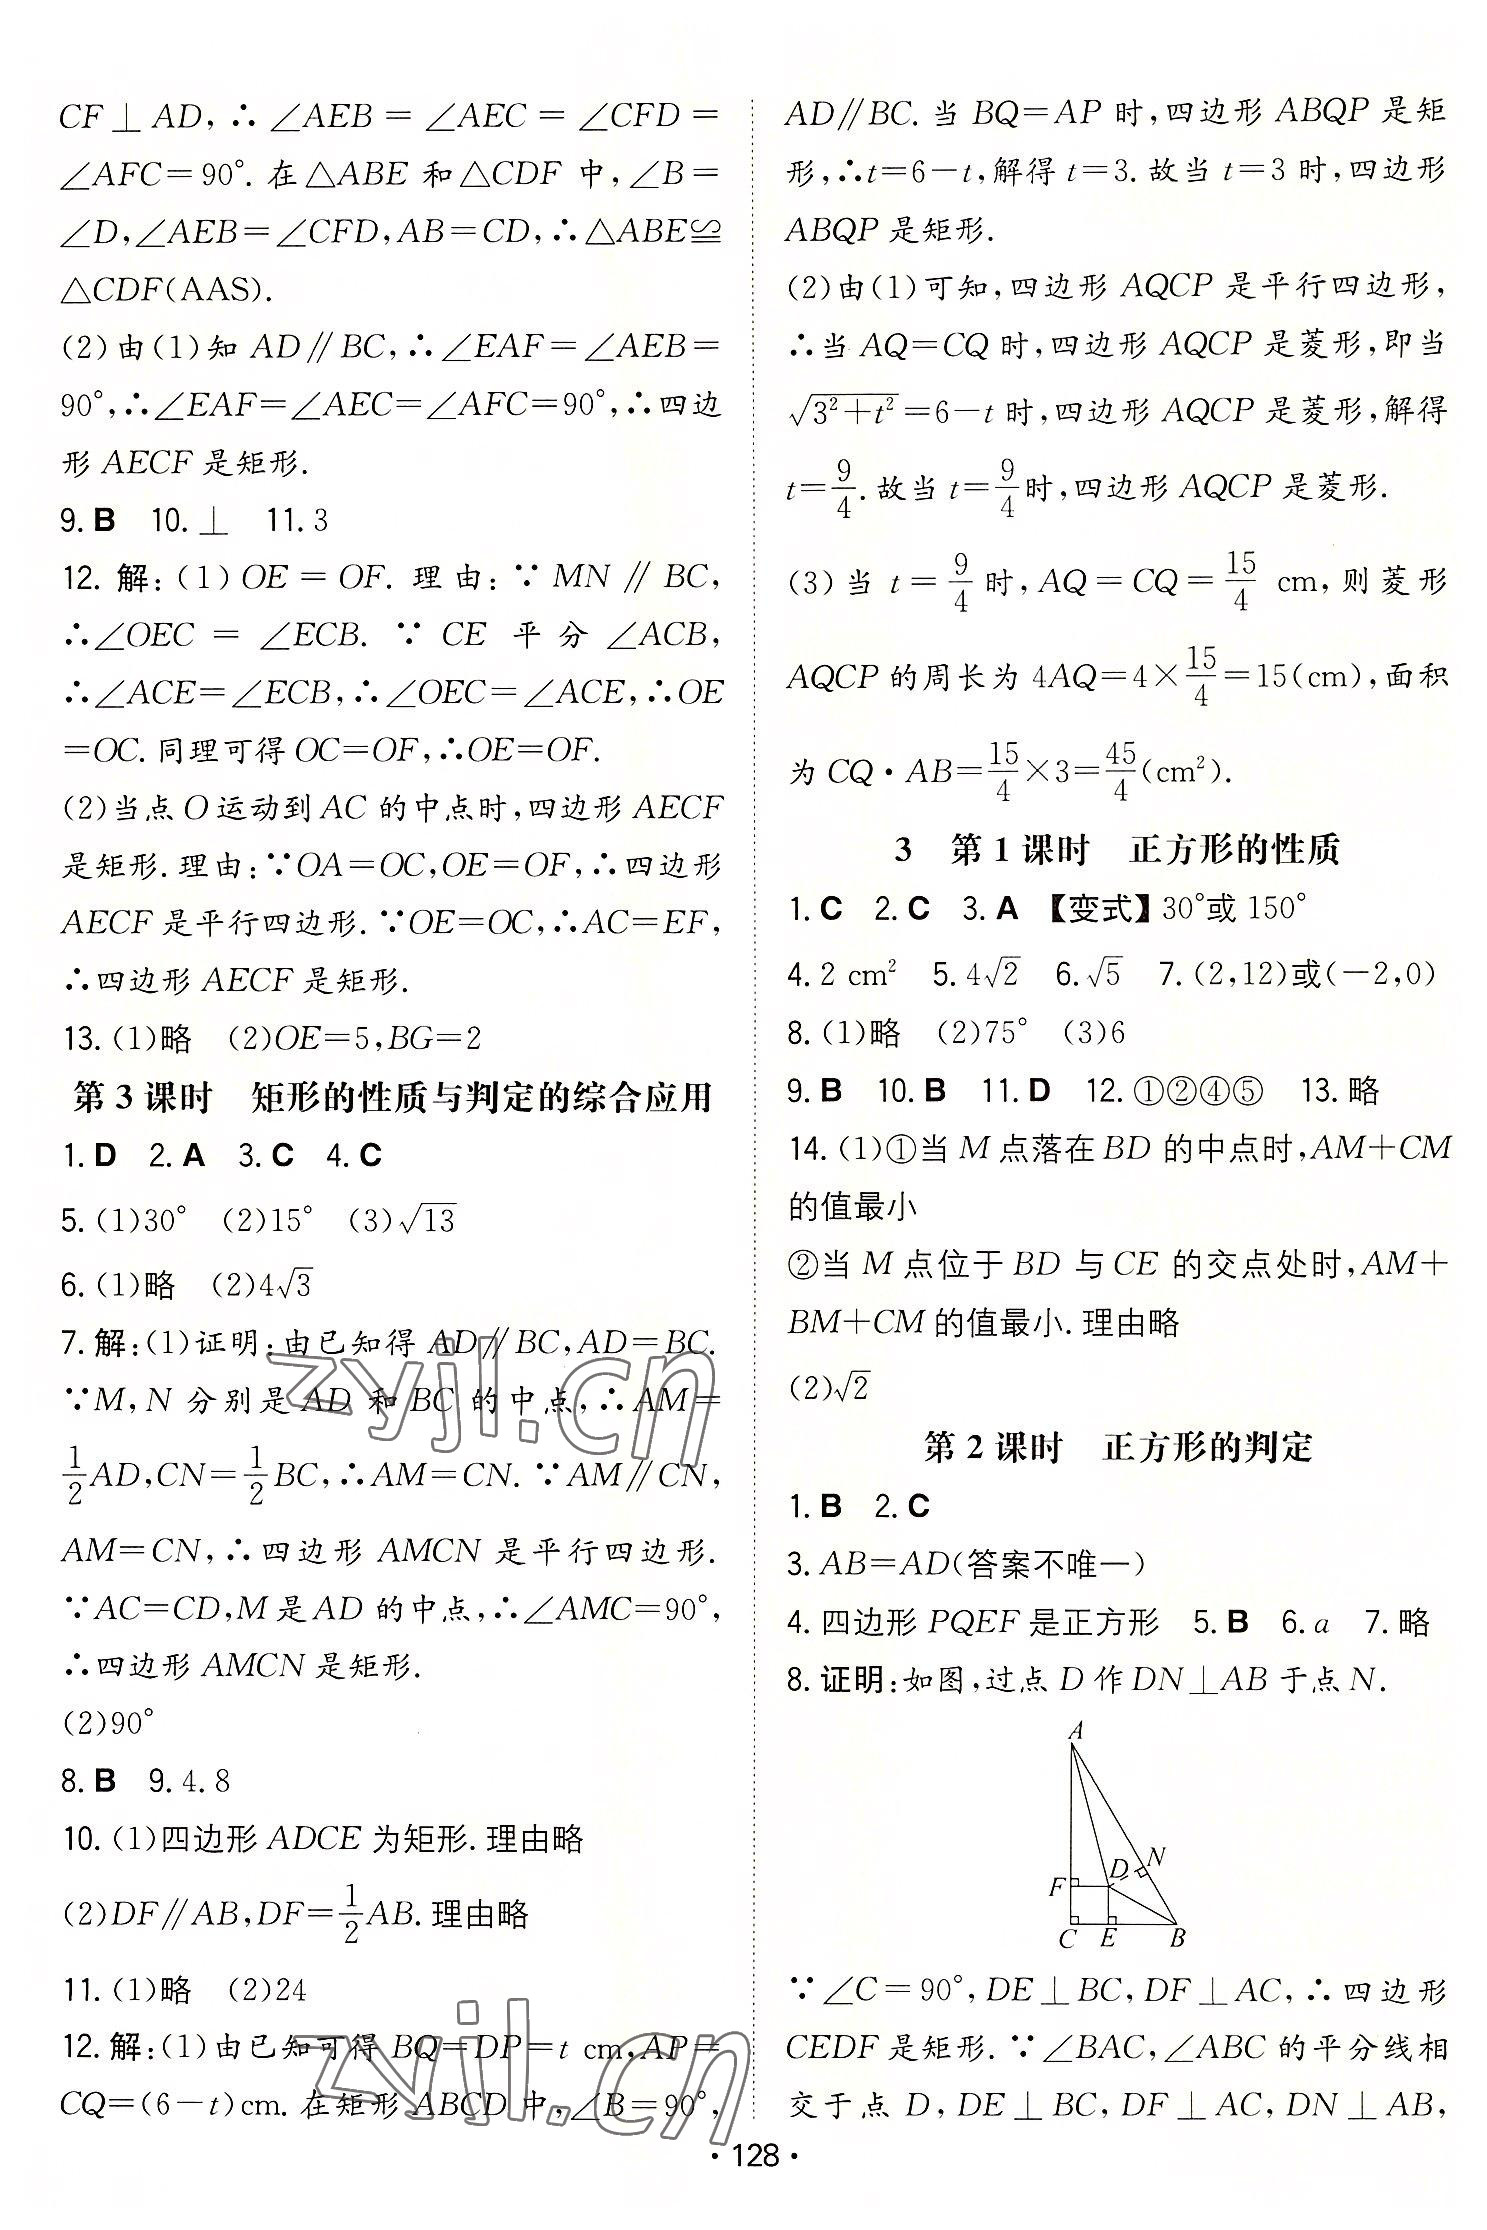 CF⊥AD,∴∠AEB=∠AEC=∠CFD=
∠AFC=90°.在△ABE和△CDF中,∠B=
∠D,∠AEB=∠CFD,AB=CD,∴△ABE≌
△CDF(AAS).
(2)由(1)知AD∥BC,∴∠EAF=∠AEB=
90°,∴∠EAF=∠AEC=∠AFC=90°,∴四边
形AECF是矩形.
9.B 10.⊥ 11.3
12.解:(1)OE=OF.理由:∵MN∥BC,
∴∠OEC=∠ECB.∵CE平分∠ACB,
∴∠ACE=∠ECB,∴∠OEC=∠ACE,∴OE
=OC.同理可得OC=OF,∴OE=OF.
(2)当点O运动到AC的中点时,四边形AECF
是矩形.理由:∵OA=OC,OE=OF,∴四边形
AECF是平行四边形.∵OE=OC,∴AC=EF,
∴四边形AECF是矩形.
13.(1)略 (2)OE=5,BG=2
第3课时 矩形的性质与判定的综合应用
1.D 2.A 3.C 4.C
5.(1)30° (2)15° (3)√13
6.(1)略 (2)4√3
7.解:(1)证明:由已知得AD∥BC,AD=BC.
∵M,N分别是AD和BC的中点,∴AM=
1/2AD,CN=1/2BC,∴AM=CN.∵AM∥CN,
AM=CN,∴四边形AMCN是平行四边形.
∵AC=CD,M是AD的中点,∴∠AMC=90°,
∴四边形AMCN是矩形.
(2)90°
8.B 9.4.8
10.(1)四边形ADCE为矩形.理由略
(2)DF∥AB,DF=1/2AB.理由略
11.(1)略 (2)24
12.解:(1)由已知可得BQ=DP=t cm,AP=
CQ=(6-t)cm.在矩形ABCD中,∠B=90°,
AD∥BC.当BQ=AP时,四边形ABQP是矩
形,∴t=6-t,解得t=3.故当t=3时,四边形
ABQP是矩形.
(2)由(1)可知,四边形AQCP是平行四边形,
∴当AQ=CQ时,四边形AQCP是菱形,即当
√(3²+t²)=6-t时,四边形AQCP是菱形,解得
t=9/4.故当t=9/4时,四边形AQCP是菱形.
(3)当t=9/4时,AQ=CQ=15/4 cm,则菱形
AQCP的周长为4AQ=4×15/4=15(cm),面积
为CQ·AB=15/4×3=45/4(cm²).
3 第1课时 正方形的性质
1.C 2.C 3.A 【变式】30°或150°
4.2 cm² 5.4√2 6.√5 7.(2,12)或(-2,0)
8.(1)略 (2)75° (3)6
9.B 10.B 11.D 12.①②④⑤ 13.略
14.(1)①当M点落在BD的中点时,AM+CM
的值最小
②当M点位于BD与CE的交点处时,AM+
BM+CM的值最小.理由略
(2)√2
第2课时 正方形的判定
1.B 2.C
3.AB=AD(答案不唯一)
4.四边形PQEF是正方形 5.B 6.a 7.略
8.证明:如图,过点D作DN⊥AB于点N.
A
D N
F
C E B
∵∠C=90°,DE⊥BC,DF⊥AC,∴四边形
CEDF是矩形.∵∠BAC,∠ABC的平分线相
交于点D,DE⊥BC,DF⊥AC,DN⊥AB,
·128·
zyjl.cn
zyjl.cn